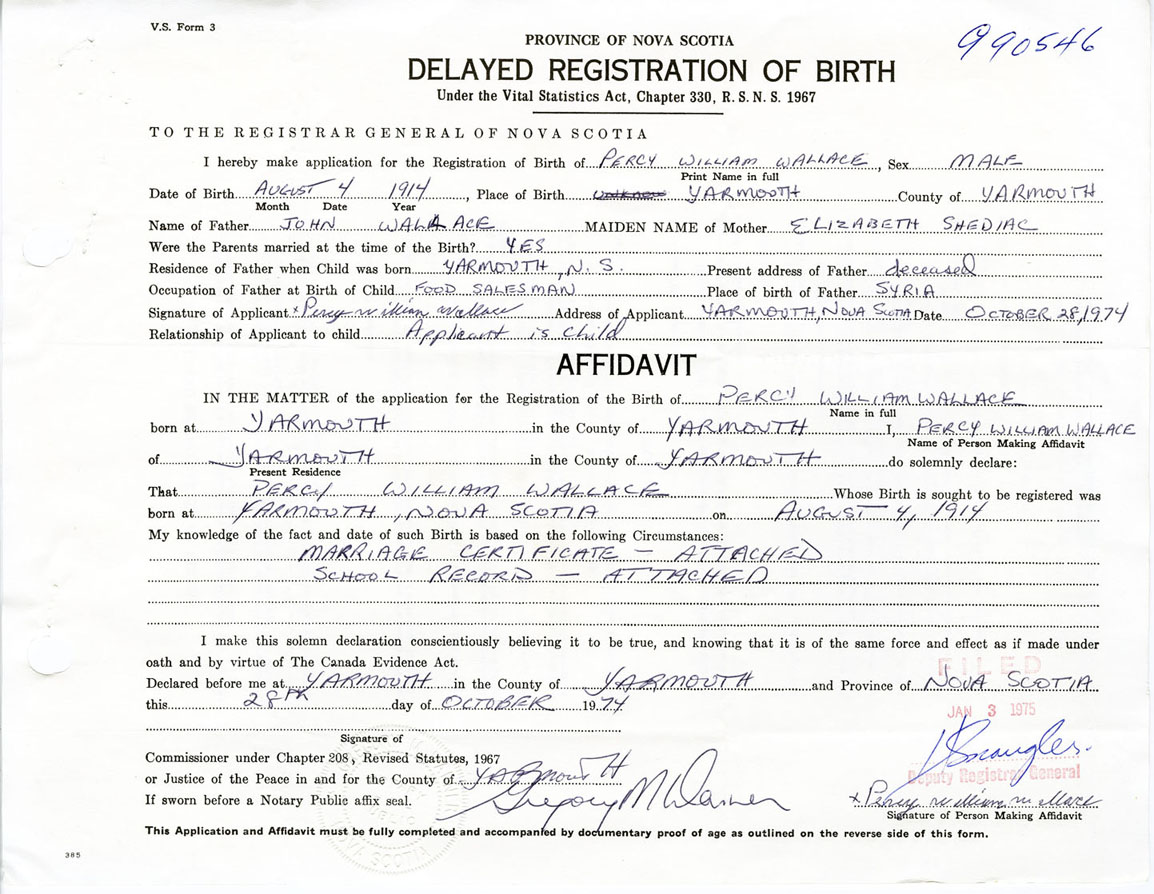 V.S. Form 3
990546
PROVINCE OF NOVA SCOTIA
DELAYED REGISTRATION OF BIRTH
Under the Vital Statistics Act, Chapter 330, R.S.N.S. 1967
TO THE REGISTRAR GENERAL OF NOVA SCOTIA
I hereby make application for the Registration of Birth of PERCY WILLIAM WALLACE, Sex MALE
Print Name in full
Date of Birth AUGUST 4 1914, Place of Birth YARMOUTH County of YARMOUTH
Month Date Year
Name of Father JOHN WALLACE MAIDEN NAME of Mother ELIZABETH SHEDIAC
Were the Parents married at the time of the Birth? YES
Residence of Father when Child was born YARMOUTH, N.S. Present address of Father deceased
Occupation of Father at Birth of Child FOOD SALESMAN Place of birth of Father SYRIA
Signature of Applicant x Percy William Wallace Address of Applicant YARMOUTH, NOVA SCOTIA Date OCTOBER 28, 1974
Relationship of Applicant to child Applicant is child
AFFIDAVIT
IN THE MATTER of the application for the Registration of the Birth of PERCY WILLIAM WALLACE
Name in full
born at YARMOUTH in the County of YARMOUTH I, PERCY WILLIAM WALLACE
Name of Person Making Affidavit
of YARMOUTH in the County of YARMOUTH do solemnly declare:
Present Residence
That PERCY WILLIAM WALLACE Whose Birth is sought to be registered was
born at YARMOUTH, NOVA SCOTIA on AUGUST 4, 1914
My knowledge of the fact and date of such Birth is based on the following Circumstances:
MARRIAGE CERTIFICATE - ATTACHED
SCHOOL RECORD - ATTACHED
I make this solemn declaration conscientiously believing it to be true, and knowing that it is of the same force and effect as if made under
oath and by virtue of The Canada Evidence Act.
FILED
Declared before me at YARMOUTH in the County of YARMOUTH and Province of NOVA SCOTIA
this 28th day of OCTOBER 1974
JAN 3 1975
Signature of
Commissioner under Chapter 208, Revised Statutes, 1967
or Justice of the Peace in and for the County of YARMOUTH
Deputy Registrar General
If sworn before a Notary Public affix seal.
x Percy William Wallace
Signature of Person Making Affidavit
This Application and Affidavit must be fully completed and accompanied by documentary proof of age as outlined on the reverse side of this form.
385